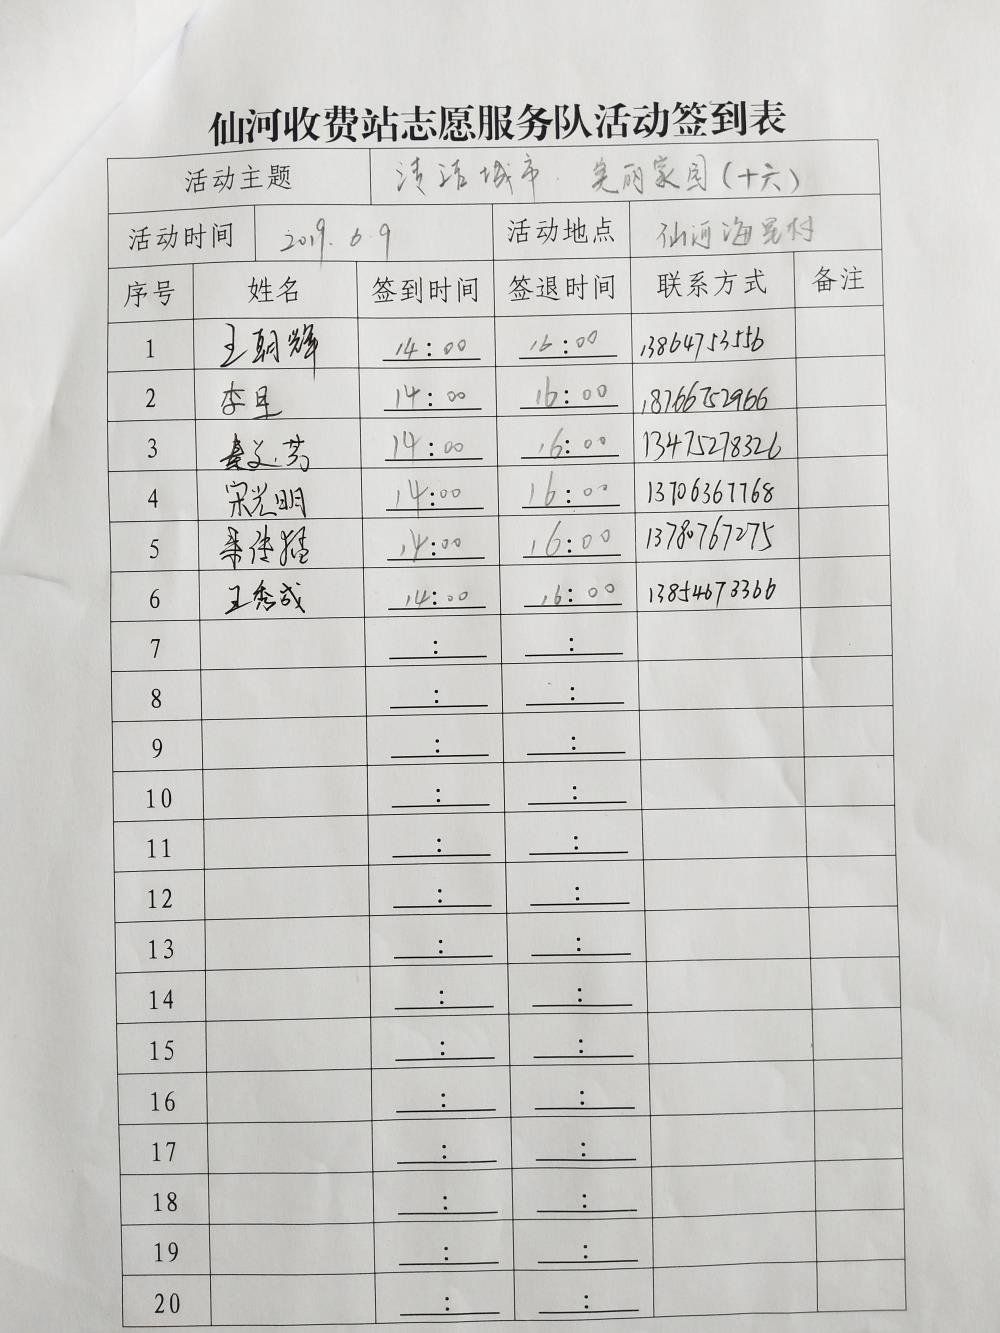 仙河收费站志愿服务队活动签到表
活动主题 清洁城市·美丽家园(十六)
活动时间 2019.6.9 活动地点 仙河海星村
序号 姓名 签到时间 签退时间 联系方式 备注
1 王朝辉 14:00 16:00 13864753556
2 李早 14:00 16:00 18766752966
3 14:00 16:00 13475278326
4 宋光明 14:00 16:00 13706367768
5 14:00 16:00 13780767275
6 王秀成 14:00 16:00 13854673366
7 : :
8 : :
9 : :
10 : :
11 : :
12 : :
13 : :
14 : :
15 : :
16 : :
17 : :
18 : :
19 : :
20 : :